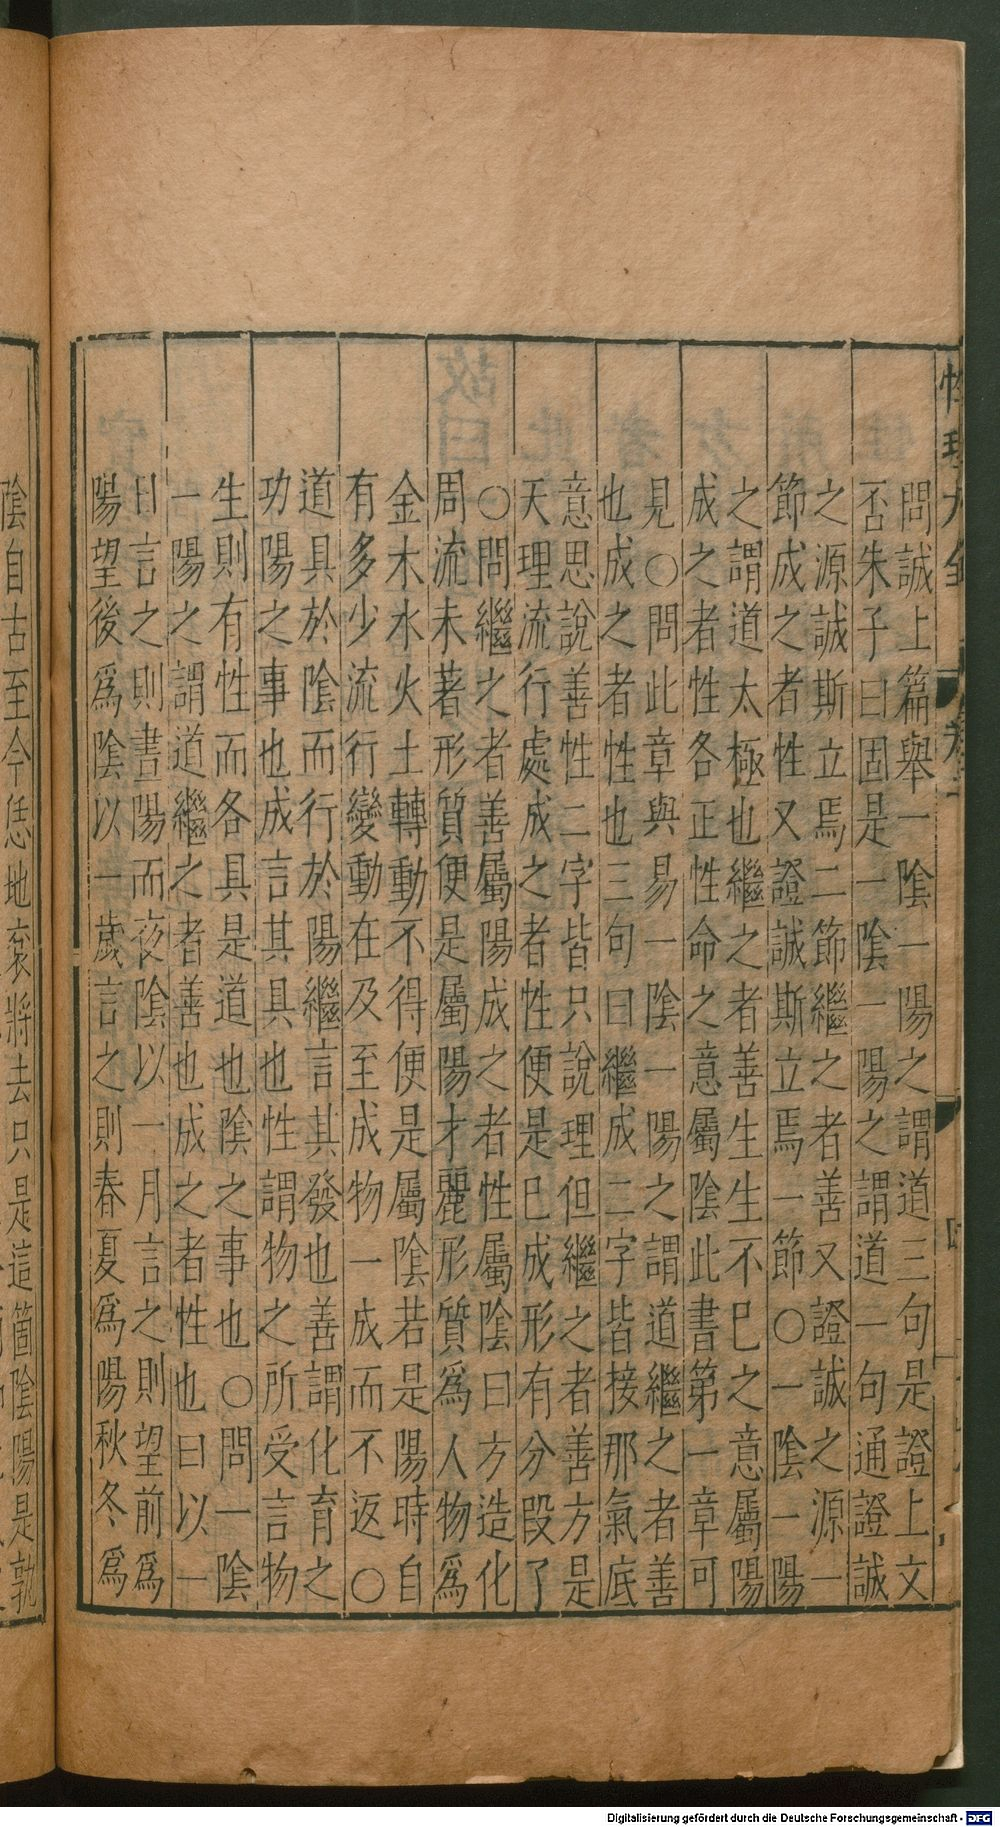 問誠上篇舉一陰一陽之謂道三句是證上文
否朱子曰固是一陰一陽之謂道一句通證誠
之源誠斯立焉二節繼之者善又證誠之源一
節成之者性又證誠斯立焉一節○一陰一陽
之謂道太極也繼之者善生生不已之意屬陽
成之者性各正性命之意屬陰此書第一章可
見○問此章與易一陰一陽之謂道繼之者善
也成之者性也三句曰繼成二字皆接那氣底
意思說善性二字皆只說理但繼之者善方是
天理流行處成之者性便是已成形有分段了
○問繼之者善屬陽成之者性屬陰曰方造化
周流未著形質便是屬陽才麗形質爲人物爲
金木水火土轉動不得便是屬陰若是陽時自
有多少流行變動在及至成物一成而不返○
道具於陰而行於陽繼言其發也善謂化育之
功陽之事也成言其具也性謂物之所受言物
生則有性而各具是道也陰之事也○問一陰
一陽之謂道繼之者善也成之者性也曰以一
日言之則晝陽而夜陰以一月言之則望前爲
陽望後爲陰以一歲言之則春夏爲陽秋冬爲
陰自古至今恁地衮將去只是這箇陰陽是孰
Digitalisierung gefördert durch die Deutsche Forschungsgemeinschaft - DFG